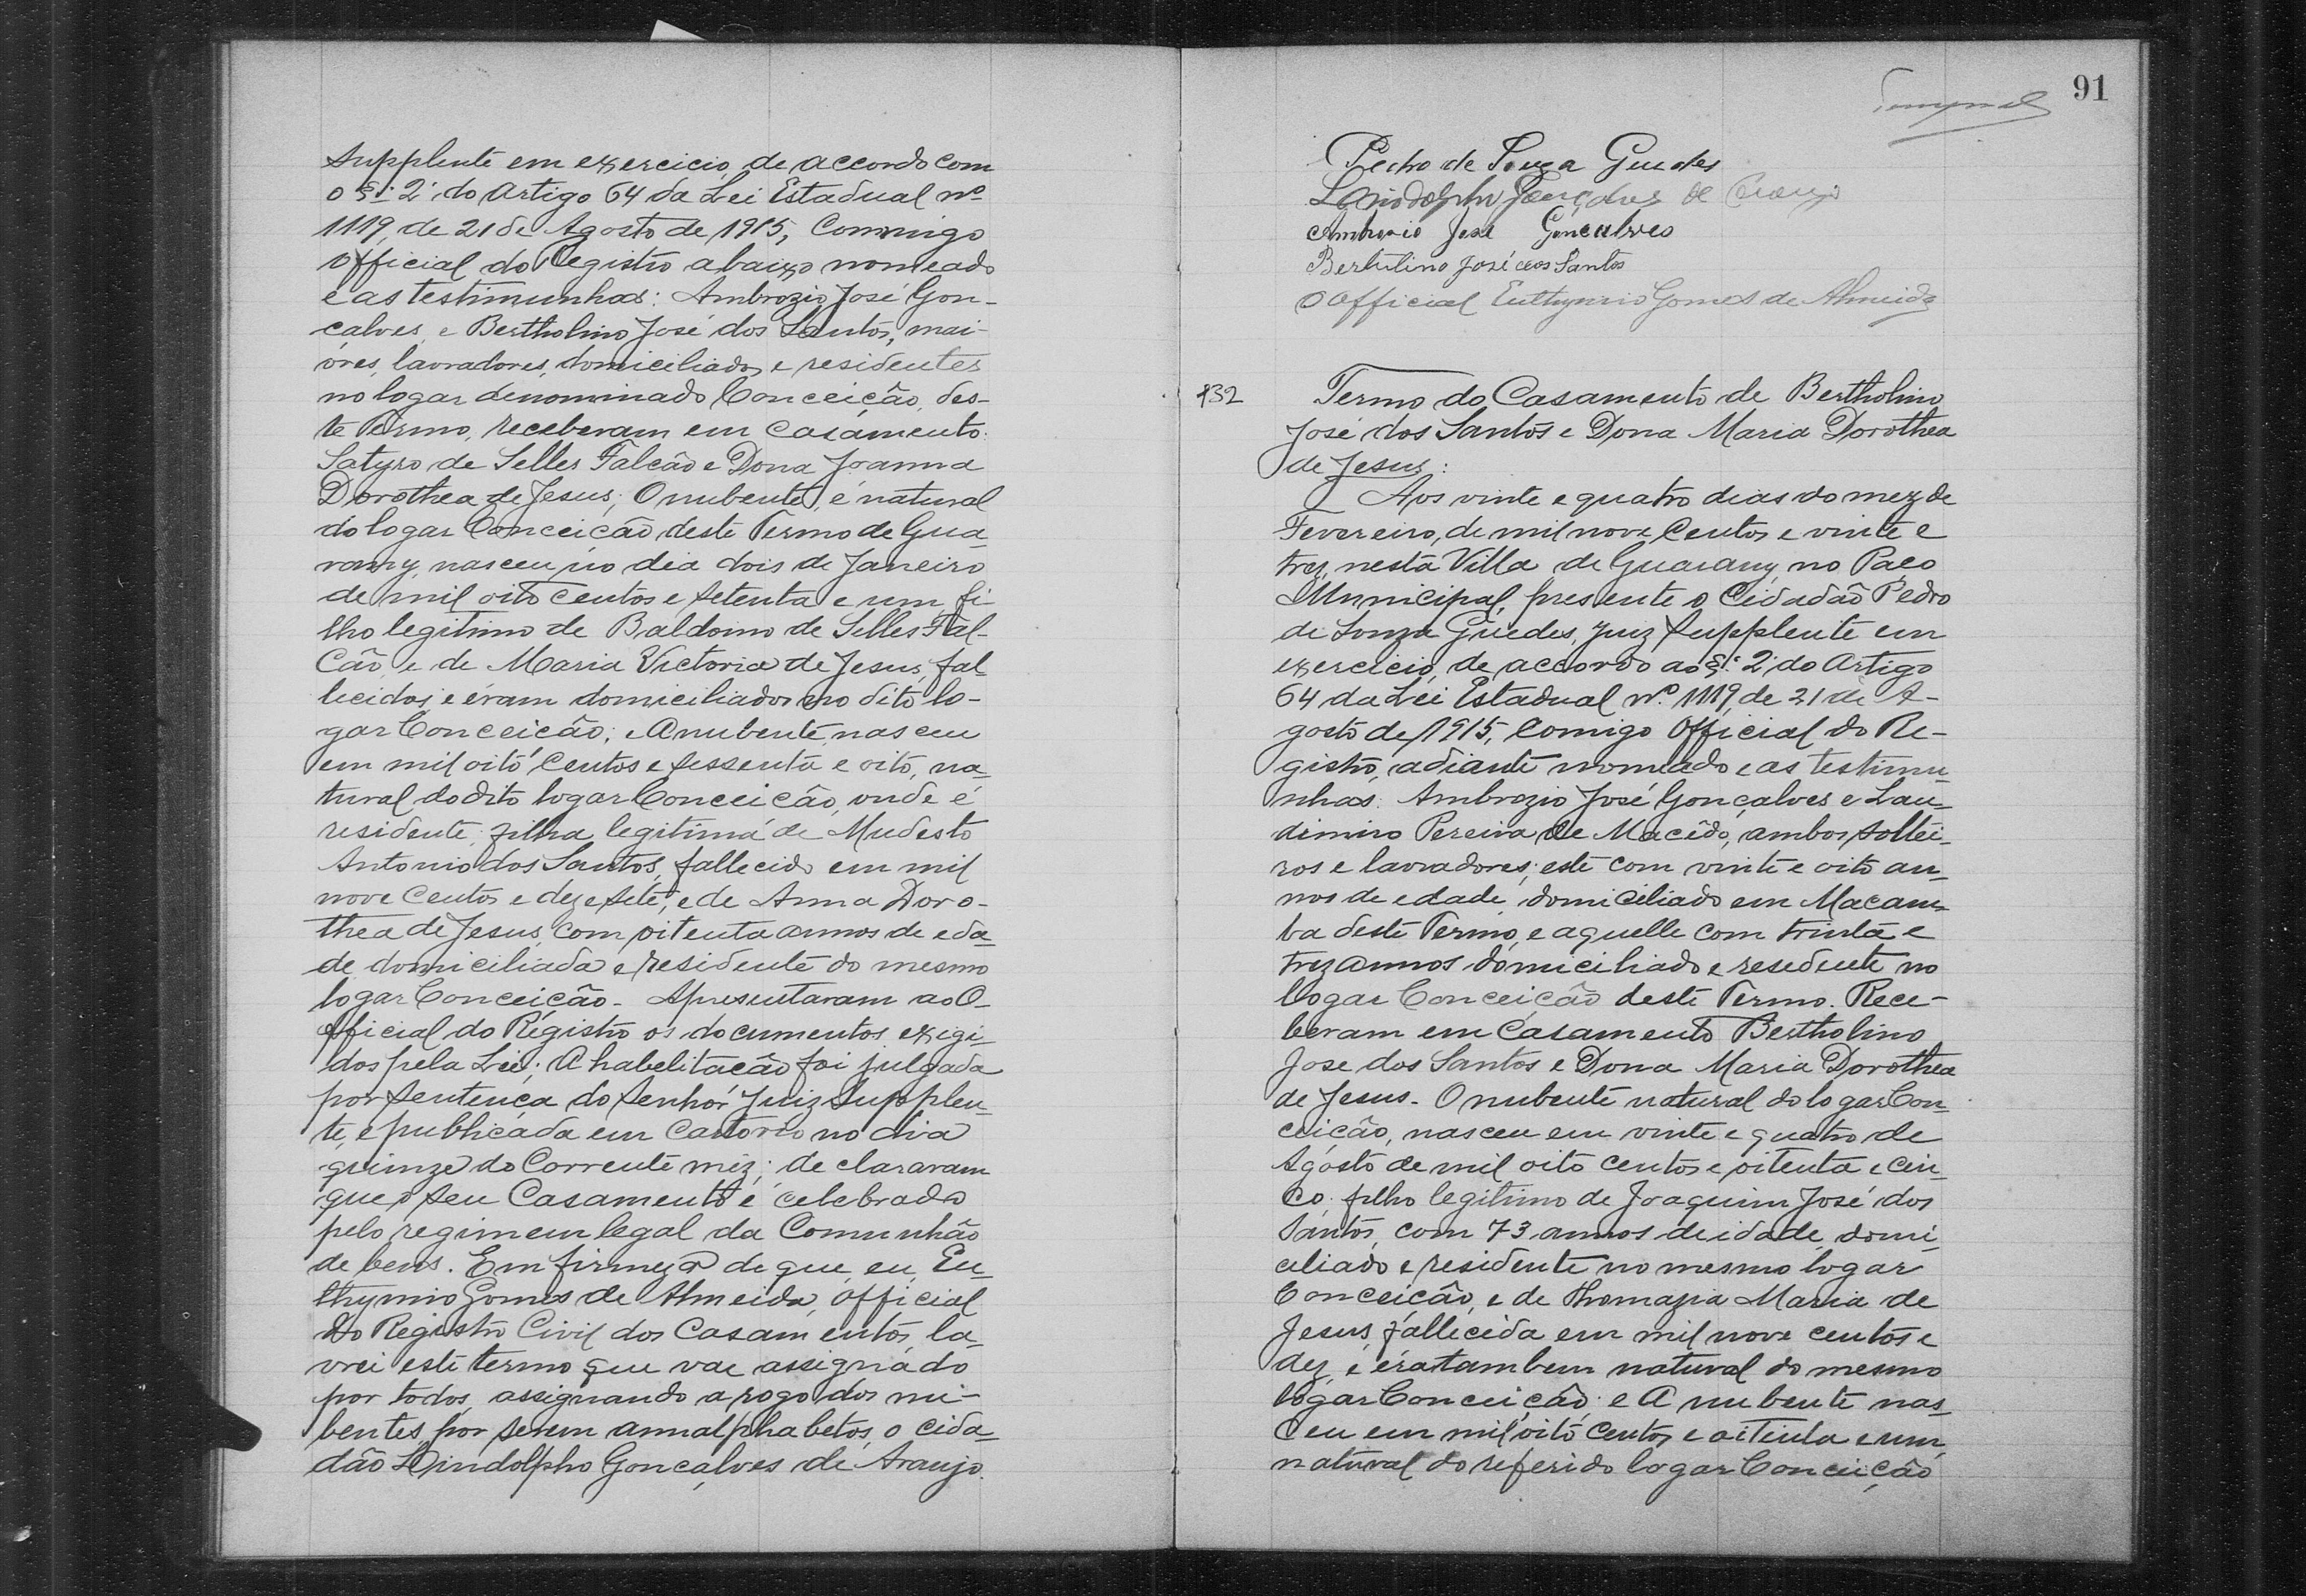 supplente em exercicio, de accordo com
o §: 2º do artigo 64 da Lei Estadual nº
1119, de 21 de Agosto de 1915, Commigo
Official do Registro abaixo nomeado
e as testimunhas: Ambrozio José Gon-
çalves, e Bertholino José dos Santos, mai-
ores, lavradores, domiciliados e residentes
no logar denominado Conceição, des-
te Termo, receberam em Casamento:
Satyro de Selles Falcão e Dona Joanna
Dorothea de Jesus; O nubente, é natural
do logar Conceição, deste Termo de Gua-
rany, nasceu no dia dois de Janeiro
de mil oito centos e setenta e um, fi
lho legitimo de Baldoino de Selles Fal-
cão, e de Maria Victoria de Jesus, fal-
lecidos, e éram domiciliados no dito lo-
gar Conceição; e A nubente, nasceu
em mil oito centos e sessenta e oito, na-
tural do dito logar Conceição, onde é
residente, filha legitima de Mudesto
Antonio dos Santos, fallecido em mil
nove centos e dezesete, e de Anna Doro-
thea de Jesus, com oitenta annos de eda-
de domiciliada e residente do mesmo
logar Conceição - Apresentaram ao O-
fficial do Registro os documentos exigi-
dos pela Lei; A habelitação foi julgada
por sentença do Senhor Juiz Supplen-
te, e publicada em Cartorio no dia
quinze do Corrente mêz; de clararam
que o seu Casamento é celebrado
pelo regimem legal da Comunhão
de bens. Em firmeza de que, eu, Eu-
thymio Gomes de Almeida, Official
do Registro Civil dos Casamentos, la-
vrei este termo que vae assignado
por todos, assignando a rogo dos nu-
bentes, por serem annalphabetos, o cida-
dão Lindolpho Gonçalves de Araujo.
91
Pedro de Souza Guedes
Lindolpho Gonçalves de Araujo
Ambrozio José Gonçalves
Bertulino José dos Santos
O Official Euthymio Gomes de Almeida
132
Termo do Casamento de Bertholino
José dos Santos e Dona Maria Dorothea
de Jesus:
Aos vinte e quatro dias do mez de
Fevereiro, de mil nove Centos e vinte e
trez, nesta Villa de Guarany, no Paço
Municipal, presente o Cidadão Pedro
de Souza Guedes, Juiz Supplente em
exercicio, de accordo ao §: 2º do Artigo
64 da Lei Estadual nº. 1119, de 21 de A-
gosto de 1915, Comigo Official do Re-
gistro, adiante nomeado e as testimu-
nhas: Ambrozio José Gonçalves e Lau-
dimiro Pereira de Macêdo, ambos soltei-
ros e lavradores; este com vinte e oito an-
nos de edade, domiciliado em Macam-
ba deste Termo, e aquelle com trinta e
trez annos domiciliado e resedente no
logar Conceição deste Termo. Rece-
beram em Casamento Bertholino
Jose dos Santos e Dona Maria Dorothea
de Jesus - O nubente natural do logar Con-
ceição, nasceu em vinte e quatro de
Agosto de mil oito centos e oitenta e cin-
co, filho legitimo de Joaquim José dos
Santos, com 73 annos de idade, domi-
ciliado e residente no mesmo logar
Conceição, e de Thomazia Maria de
Jesus, fallecida em mil nove centos e
dez, e éra tambem natural do mesmo
logar Conceição; e A nubente nas-
ceu em mil oito centos e oitenta e um,
natural do referido logar Conceição